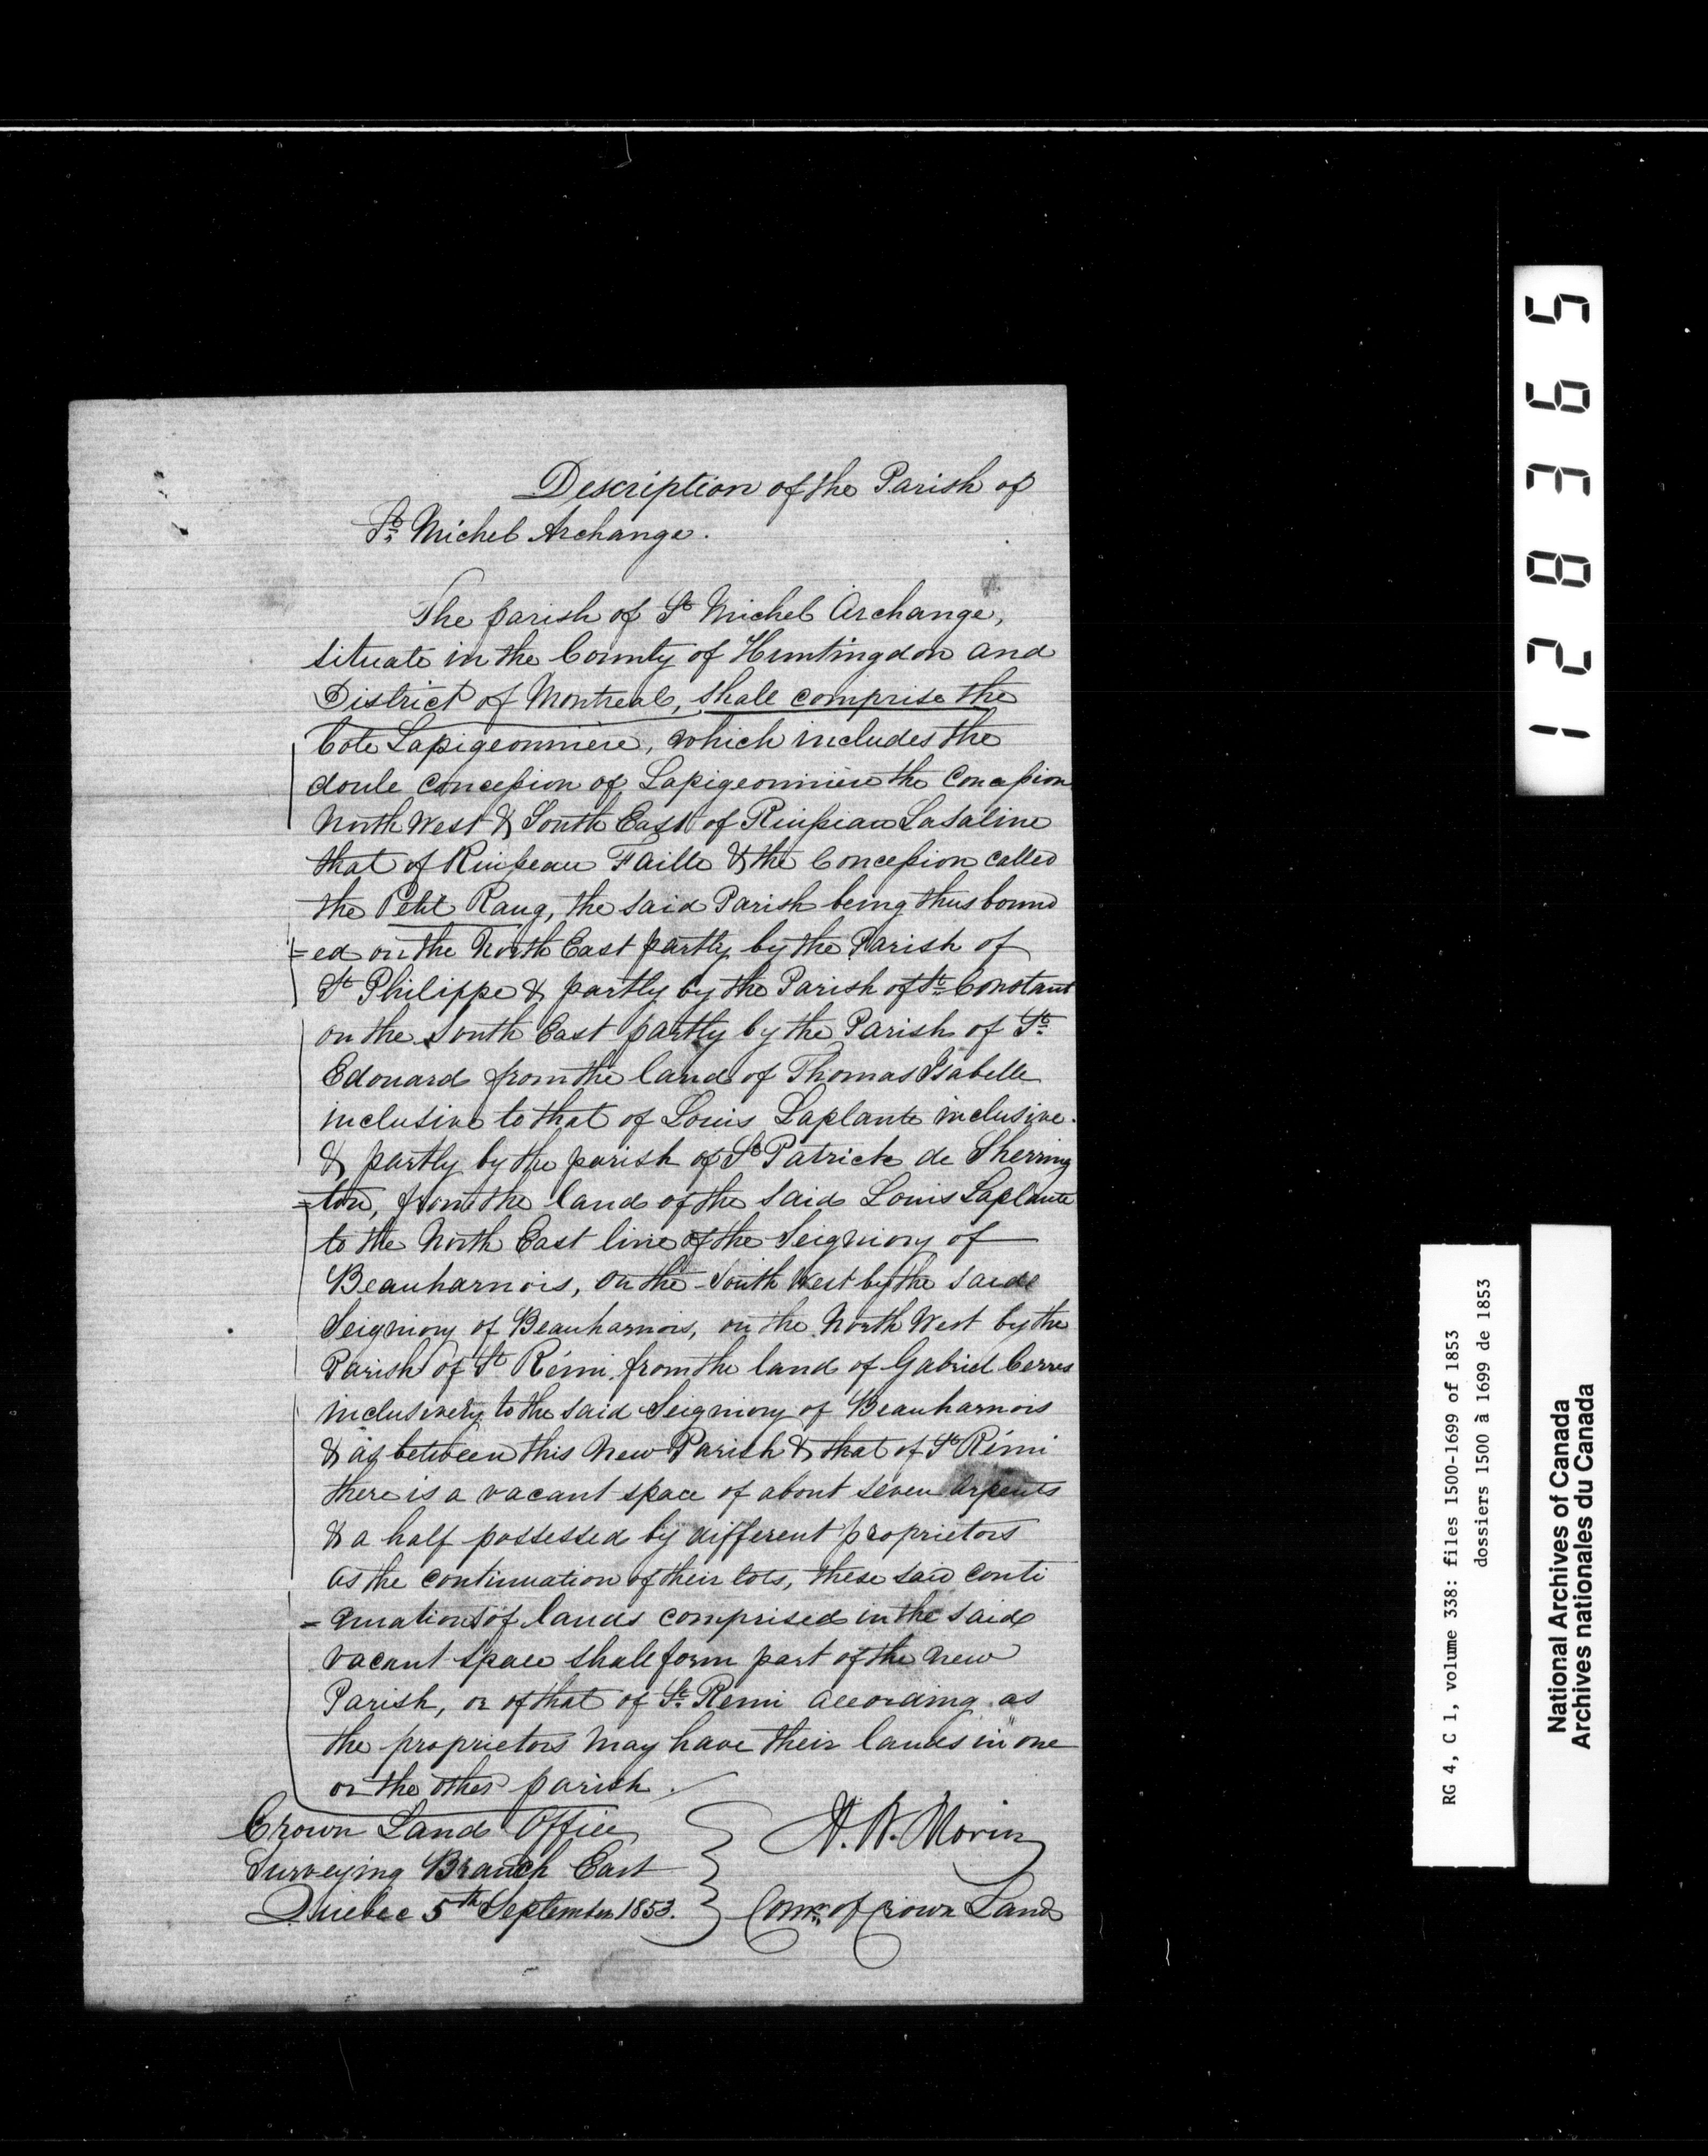 Description of the Parish of
St. Michel Archange.
The parish of St Michel Archange,
situate in the County of Huntingdon and
District of Montreal, shall comprise the
Cote Lapigeonniere, which includes the
doule concession of Lapigeonniere the Concession
North West & South East of Ruisseau Lasaline
that of Ruisseau Faille & the Concession called
the Petit Rang, the said Parish being thus bound
=ed on the North East partly by the Parish of
St Philippe & partly by the Parish of St. Constant
on the South East partly by the Parish of St.
Edouard from the land of Thomas Isabelle
inclusive to that of Louis Laplante inclusive.
& partly by the parish of St Patrick de Sherring
=ton, from the land of the said Louis Laplante
to the North East line of the Seigniory of
Beauharnois, on the South West by the said
Seigniory of Beauharnois, on the North West by the
Parish of St Rémi from the land of Gabriel
inclusively to the said Seigniory of Beauharnois
& as between this New Parish & that of St Rémi
there is a vacant space of about seven arpents
& a half possessed by different proprietors
as the continuation of their lots, these said conti
=nuations of lands comprised in the said
vacant space shall form part of the new
Parish, or of that of St. Remi according as
the proprietors may have their lands in one
or the other parish.
Crown Land Office
Surveying Branch East
Quebec 5th September 1853.
A. N. Morin
Comr. of Crown Lands
128365
RG 4, C 1, volume 338: files 1500-1699 of 1853
dossiers 1500 à 1699 de 1853
National Archives of Canada
Archives nationales du Canada